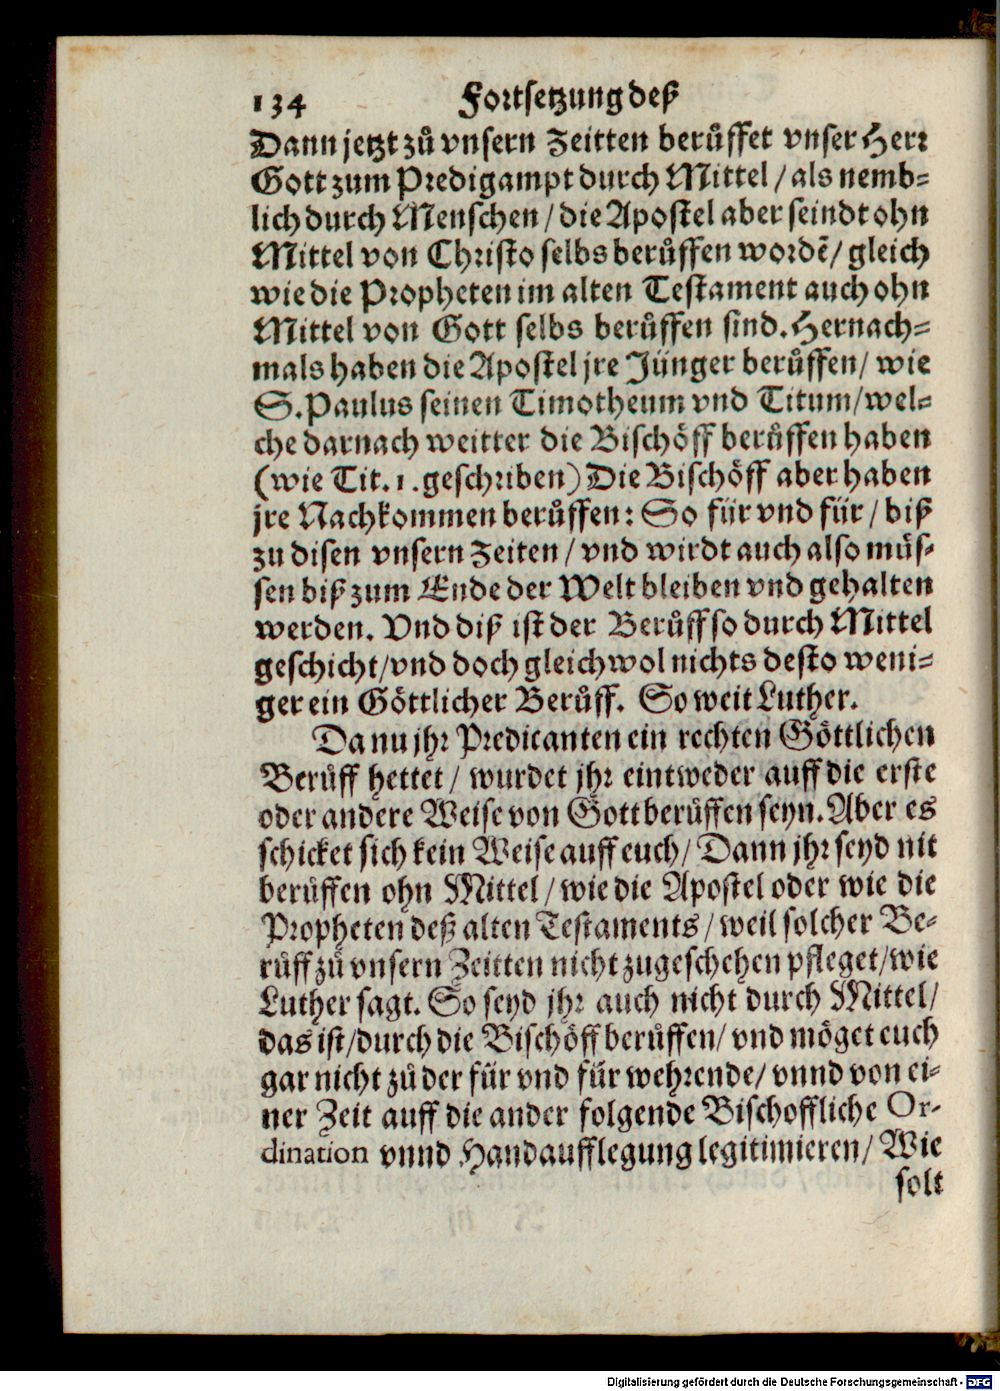 134 Fortsetzung deß
Dann jetzt zů vnsern Zeitten berůffet vnser Herr
Gott zum Predigampt durch Mittel / als nemb-
lich durch Menschen / die Apostel aber seindt ohn
Mittel von Christo selbs berůffen wordē / gleich
wie die Propheten im alten Testament auch ohn
Mittel von Gott selbs berůffen sind. Hernach-
mals haben die Apostel jre Jünger berůffen / wie
S. Paulus seinen Timotheum vnd Titum / wel-
che darnach weitter die Bischöff berůffen haben
(wie Tit. 1. geschriben) Die Bischöff aber haben
jre Nachkommen berůffen: So für vnd für / biß
zu disen vnsern Zeiten / vnd wirdt auch also müs-
sen biß zum Ende der Welt bleiben vnd gehalten
werden. Vnd diß ist der Berůff so durch Mittel
geschicht / vnd doch gleichwol nichts desto weni-
ger ein Göttlicher Berůff. So weit Luther.
Da nu jhr Predicanten ein rechten Göttlichen
Berůff hettet / wurdet jhr eintweder auff die erste
oder andere Weise von Gott berůffen seyn. Aber es
schicket sich kein Weise auff euch / Dann jhr seyd nit
berůffen ohn Mittel / wie die Apostel oder wie die
Propheten deß alten Testaments / weil solcher Be-
růff zů vnsern Zeitten nicht zugeschehen pfleget / wie
Luther sagt. So seyd jhr auch nicht durch Mittel /
das ist / durch die Bischöff berůffen / vnd möget euch
gar nicht zů der für vnd für wehrende / vnnd von ei-
ner Zeit auff die ander folgende Bischoffliche Or-
dination vnnd Handaufflegung legitimieren / Wie
solt
Digitalisierung gefördert durch die Deutsche Forschungsgemeinschaft - DFG